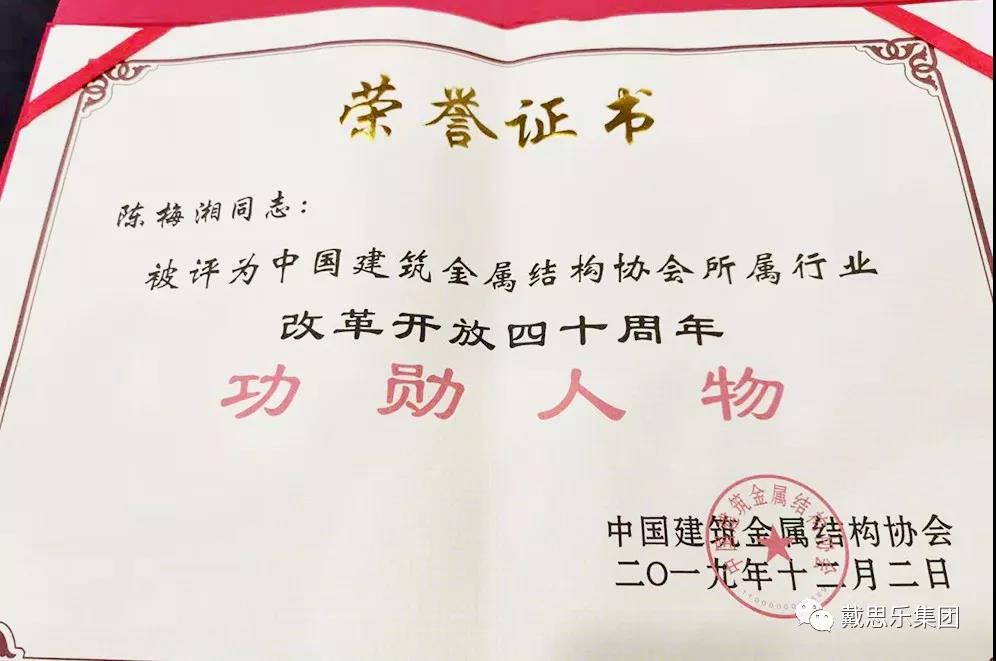 荣誉证书
陈梅湘同志：
被评为中国建筑金属结构协会所属行业
改革开放四十周年
功勋人物
中国建筑金属结构协会
二〇一九年十二月二日
中国建筑金属结构协会
戴思乐集团